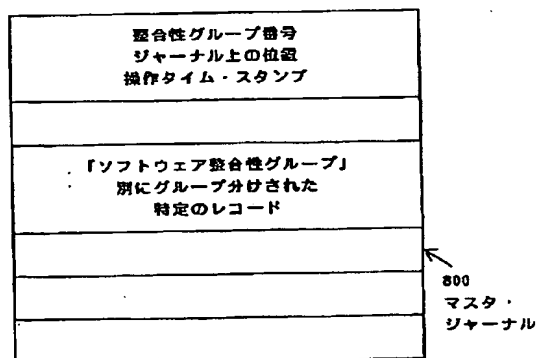 整合性グループ番号
ジャーナル上の位置
操作タイム・スタンプ
「ソフトウェア整合性グループ」
別にグループ分けされた
特定のレコード
800
マスタ・
ジャーナル